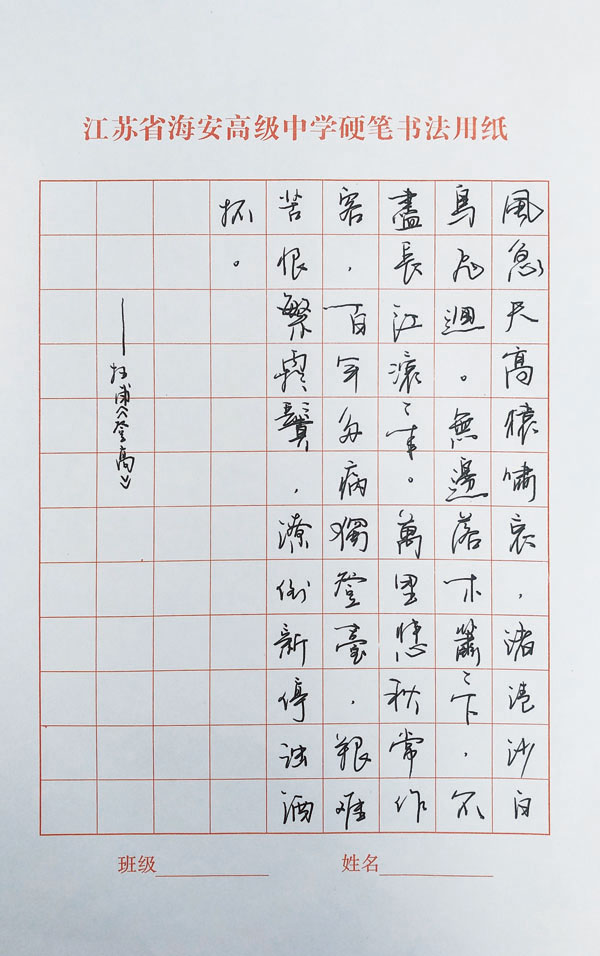 江苏省海安高级中学硬笔书法用纸
風急天高猿嘯哀，渚清沙白
鳥飛迴。無邊落木蕭〻下，不
盡長江滚〻来。萬里悲秋常作
客，百年多病獨登臺，艱難
苦恨繁霜鬢，潦倒新停濁酒
杯。
——杜甫《登高》
班级
姓名